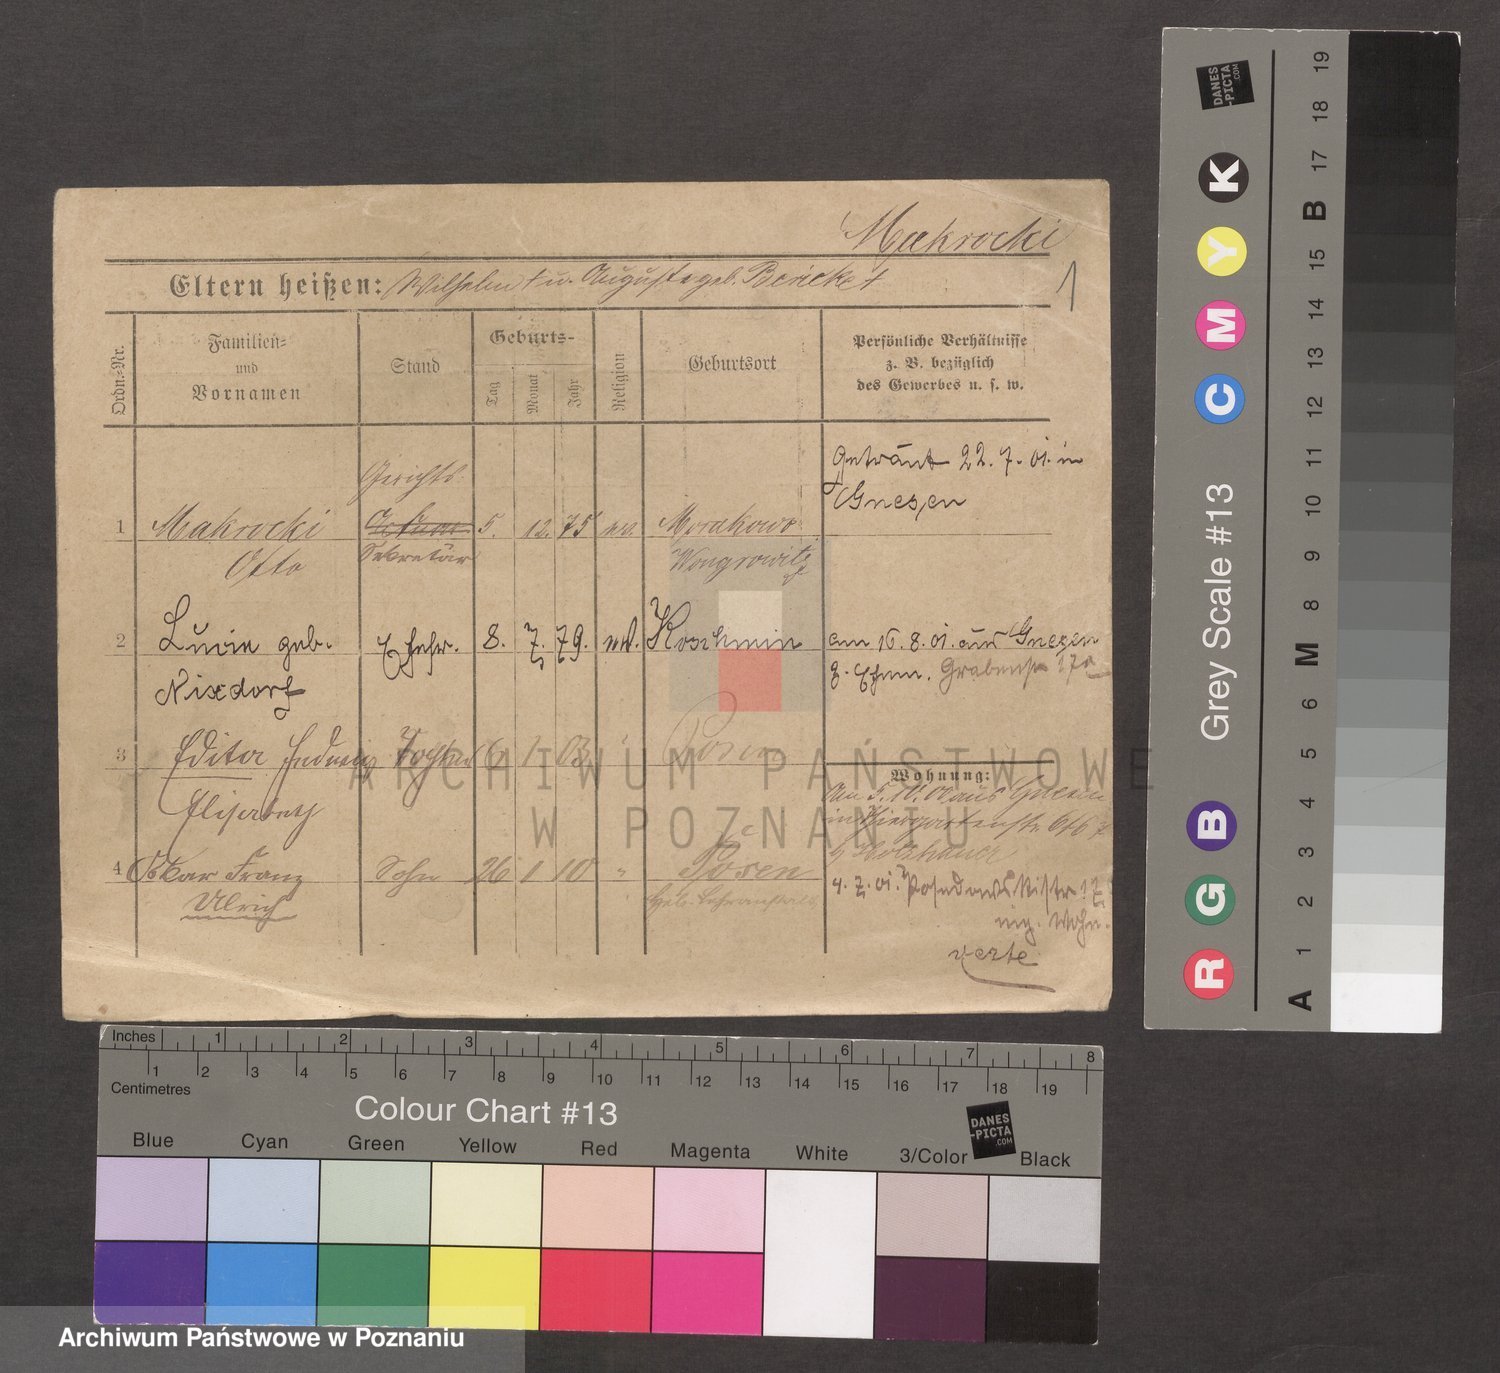 Makrocki
Eltern heißen: Wilhelm † u. Auguste geb. Berickel
1
Ordn.-Nr.
Familien-
und
Vornamen
Stand
Geburts-
Tag
Monat
Jahr
Religion
Geburtsort
Persönliche Verhältnisse
z. B. bezüglich
des Gewerbes u. s. w.
getraut 22. 7. 01. in
Gnesen
Gerichts-
1 Makrocki 5. 12. 75 ev. Morakowo
Otto Sekretär Wongrowitz
2 Lucie geb. Ehefr. 8. 7. 79. ev. Koschmin
Nixdorf
am 16. 8. 01. aus Gnesen
z. Ehem. Grabenstr 17a
3 Edita Hedwig Tochter 6 1 03 " Posen
Elisabeth
Wohnung:
in Tiergartenstr
4 Oskar Franz Sohn 26 1 10 " Posen
Ulrich
4. 7. 01.
verte
ARCHIWUM PAŃSTWOWE
W POZNANIU
Inches 1 2 3 4 5 6 7 8
1 2 3 4 5 6 7 8 9 10 11 12 13 14 15 16 17 18 19
Centimetres
Colour Chart #13
DANES
-PICTA
.COM
Blue Cyan Green Yellow Red Magenta White 3/Color Black
Grey Scale #13
R G B C M Y K
DANES
-PICTA
.COM
A 1 2 3 4 5 6 M 8 9 10 11 12 13 14 15 B 17 18 19
Archiwum Państwowe w Poznaniu